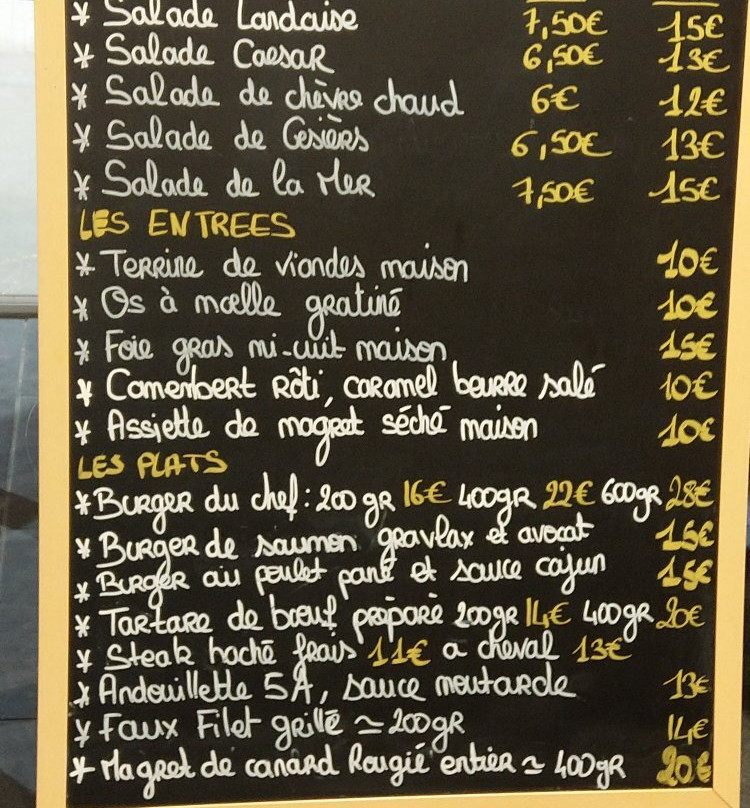 * Salade Landaise 7,50€ 15€
* Salade Caesar 6,50€ 13€
* Salade de chèvre chaud 6€ 12€
* Salade de Gesiers 6,50€ 13€
* Salade de la Mer 7,50€ 15€
LES ENTREES
* Terrine de viandes maison 10€
* Os à moelle gratiné 10€
* Foie gras mi-cuit maison 15€
* Camembert rôti, caramel beurre salé 10€
* Assiette de magret séché maison 10€
LES PLATS
* Burger du chef: 200 gr 16€ 400gr 22€ 600gr 28€
* Burger de saumon gravlax et avocat 15€
* Burger au poulet pané et sauce cajun 15€
* Tartare de bœuf préparé 200gr 14€ 400gr 20€
* Steak haché frais 11€ a cheval 13€
* Andouillette 5A, sauce moutarde 13€
* Faux Filet grillé ≃ 200gr 14€
* Magret de canard Rougié entier ≃ 400gr 20€